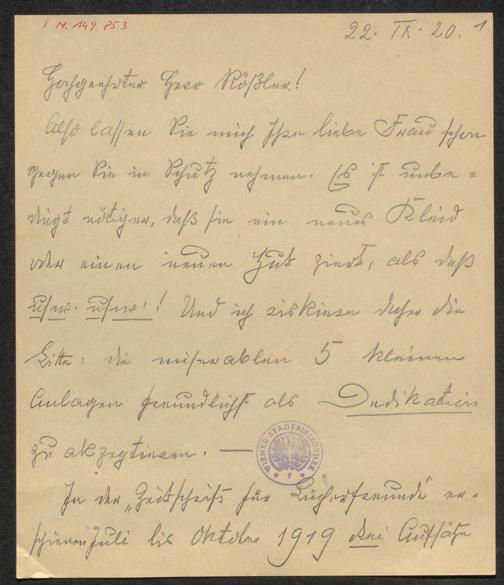 I.N. 149.853
22. IX. 20. 1
Hochgeehrter Herr Rößler!
Also lassen Sie mich Ihre liebe Frau schon
gegen Sie in Schutz nehmen. Es ist unbe=
dingt nötiger, daß sie ein neues Kleid
oder einen neuen Hut ziert, als daß
usw. usw.! Und ich riskiere daher die
Bitte: die miserablen 5 kleinen
Anlagen freundlichst als Dedikation
zu akzeptieren. —
WIENER STADTBIBLIOTHEK
In der „Zeitschrift für Bücherfreunde" er=
schienen Juli bis Oktober 1919 drei Aufsätze